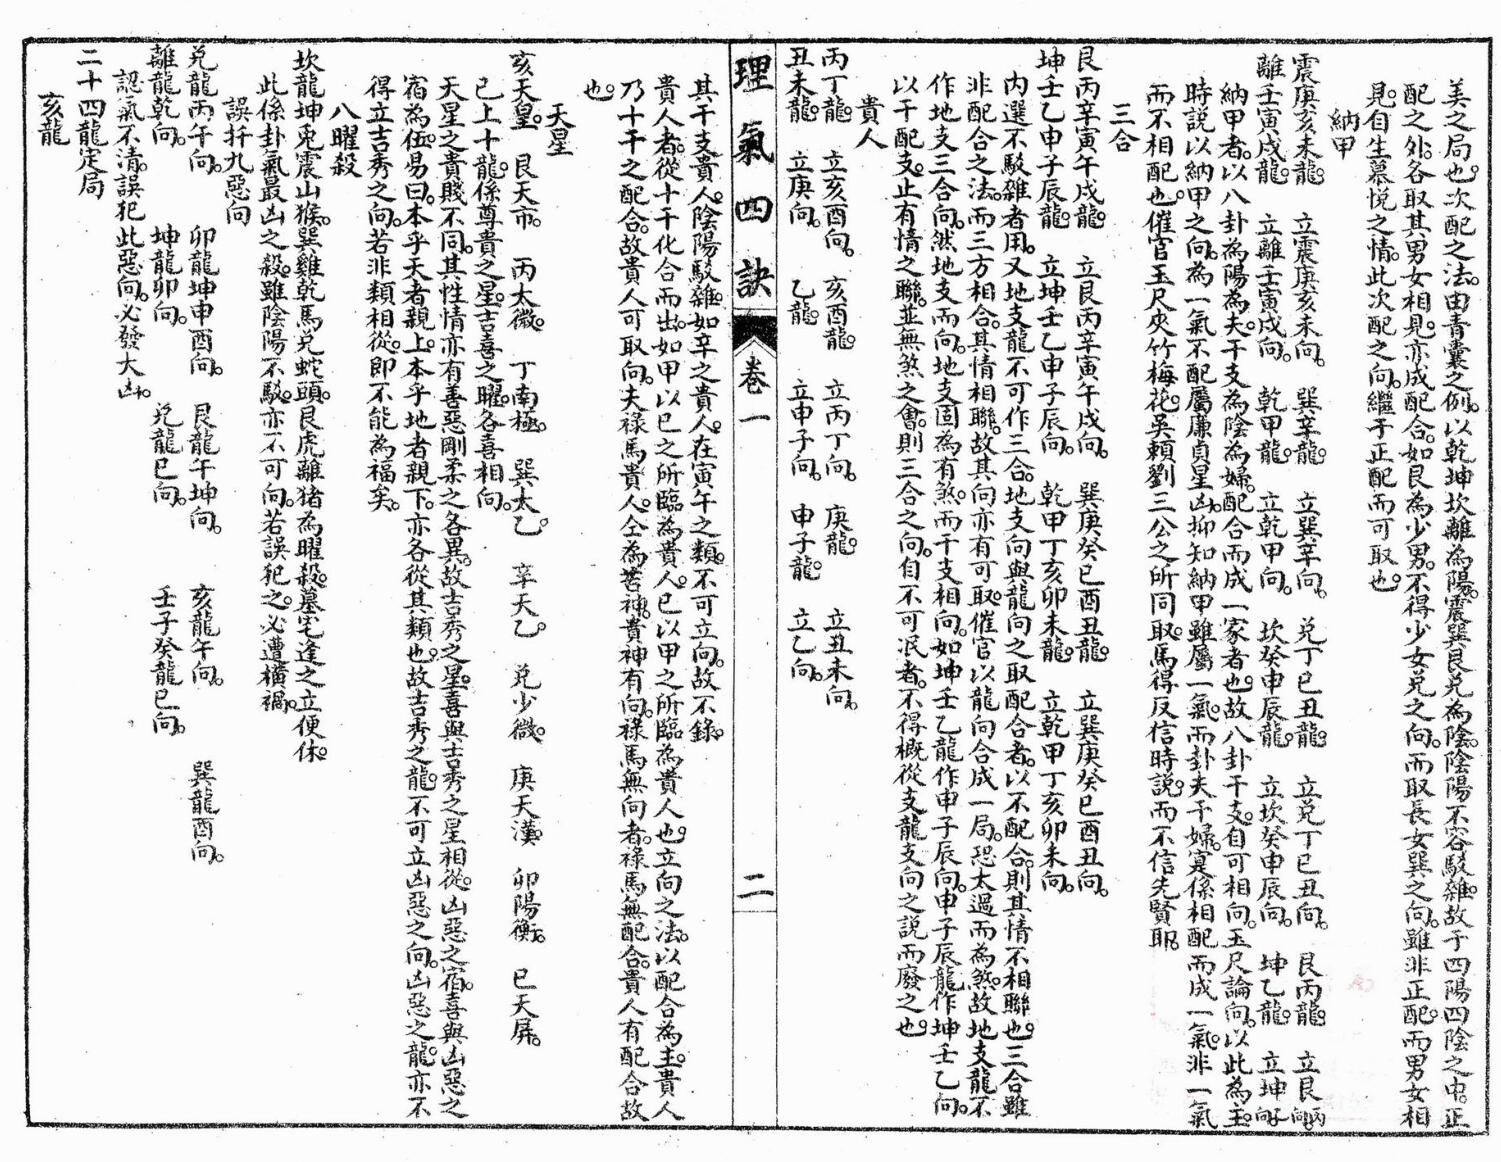 美之局也。次配之法。由青囊之例。以乾坤坎離為陽。震巽艮兌為陰。陰陽不容駁雜。故于四陽四陰之中。正
配之外。各取其男女相見。亦成配合。如艮為少男。不得少女兌之向。而取長女巽之向。雖非正配。而男女相
見。自生慕悦之情。此次配之向。繼于正配而可取也。
納甲
震庚亥未龍。 立震庚亥未向。 巽辛龍。 立巽辛向。 兌丁巳丑龍。 立兌丁巳丑向。 艮丙龍。 立艮丙向。
離壬寅戌龍。 立離壬寅戌向。 乾甲龍。 立乾甲向。 坎癸申辰龍。 立坎癸申辰向。 坤乙龍。 立坤乙向。
納甲者。以八卦為陽為夫。干支為陰為婦。配合而成一家者也。故八卦干支。自可相向。玉尺論向。以此為主。
時説以納甲之向。為一氣不配。屬廉貞星凶。抑知納甲雖屬一氣。而卦夫干婦。寔係相配而成一氣。非一氣
而不相配也。催官玉尺夾竹梅花。吳賴劉三公之所同取。焉得反信時説。而不信先賢耶。
三合
艮丙辛寅午戌龍。 立艮丙辛寅午戌向。 巽庚癸巳酉丑龍。 立巽庚癸巳酉丑向。
坤壬乙申子辰龍。 立坤壬乙申子辰向。 乾甲丁亥卯未龍。 立乾甲丁亥卯未向。
内選不駁雜者用。又地支龍不可作三合。地支向與龍向之取配合者。以不配合。則其情不相聯也。三合雖
非配合之法。而三方相合。其情相聯。故其向亦有可取。催官以龍向合成一局。恐太過而為煞。故地支龍不
作地支三合向。然地支而向。地支固為有煞。而干支相向。如坤壬乙龍作申子辰向。申子辰龍作坤壬乙向。
以干配支。止有情之聯。並無煞之會。則三合之向。自不可泯者。不得概從支龍支向之説而廢之也。
貴人
丙丁龍。 立亥酉向。 亥酉龍。 立丙丁向。 庚龍。 立丑未向。
丑未龍。 立庚向。 乙龍。 立申子向。 申子龍。 立乙向。
理氣四訣 卷一 二
其干支貴人。陰陽駁雜。如辛之貴人。在寅午之類。不可立向。故不錄。
貴人者。從十干化合而出。如甲以巳之所臨。為貴人。巳以甲之所臨為貴人也。立向之法。以配合為主。貴人
乃十干之配合。故貴人可取向。夫祿馬貴人。仝為吉神。貴神有向。祿馬無向者。祿馬無配合。貴人有配合故
也。
天星
亥天皇。 艮天市。 丙太微。 丁南極。 巽太乙。 辛天乙。 兌少微。 庚天漢。 卯陽衡。 巳天屏。
已上十龍。係尊貴之星。吉喜之曜。各喜相向。
天星之貴賤不同。其性情亦有善惡剛柔之各異。故吉秀之星。喜與吉秀之星相從。凶惡之宿。喜與凶惡之
宿為伍。易曰。本乎天者親上。本乎地者親下。亦各從其類也。故吉秀之龍。不可立凶惡之向。凶惡之龍。亦不
得立吉秀之向。若非類相從。即不能為福矣。
八曜殺
坎龍坤兎震山猴。巽雞乾馬兌蛇頭。艮虎離猪為曜殺。墓宅逢之立便休。
此係卦氣最凶之殺。雖陰陽不駁。亦不可向。若誤犯之。必遭橫禍。
誤扦九惡向
兌龍丙午向。 卯龍坤申酉向。 艮龍午坤向。 亥龍午向。 巽龍酉向。
離龍乾向。 坤龍卯向。 兌龍巳向。 壬子癸龍巳向。
認氣不清。誤犯此惡向。必發大凶。
二十四龍定局
亥龍